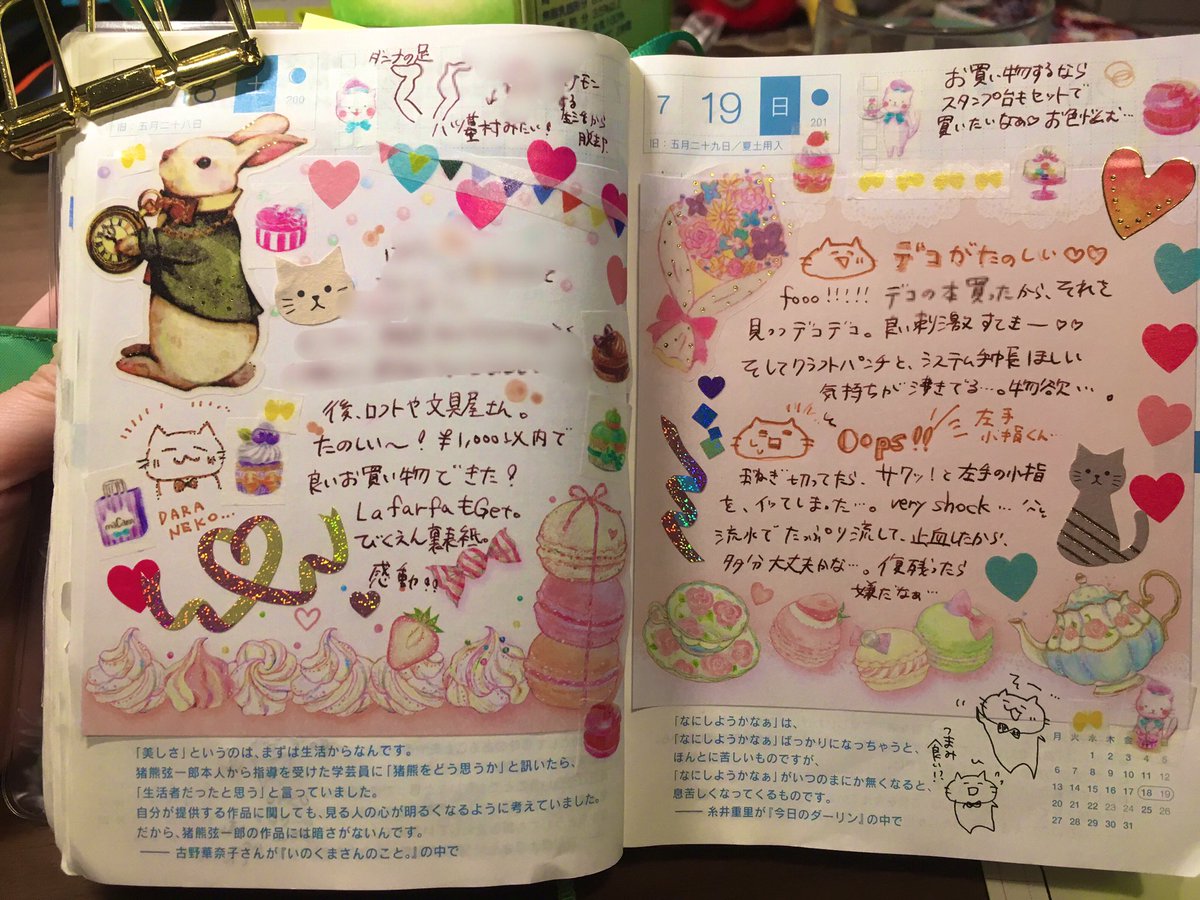 土
200
旧：五月二十八日
ダンナの足
八ツ墓村みたい!
後、ロフトや文具屋さん。
たのしい〜! ¥1,000以内で
良いお買い物できた?
LafarfaもGet。
びくえん裏表紙。
感動!!
DARA
NEKO...
「美しさ」というのは、まずは生活からなんです。
猪熊弦一郎本人から指導を受けた学芸員に「猪熊をどう思うか」と訊いたら、
「生活者だったと思う」と言っていました。
自分が提供する作品に関しても、見る人の心が明るくなるように考えていました。
だから、猪熊弦一郎の作品には暗さがないんです。
―― 古野華奈子さんが『いのくまさんのこと。』の中で
7 19 日
201
旧：五月二十九日／夏土用入
お買い物するなら
スタンプ台もセットで
買いたいなぁ♡ お色悩む…
デコがたのしい♡♡
fooo!!!!! デコの本買ったから、それを
見つつデコデコ。良い刺激すてきー♡♡
そしてクラフトパンチと、システム手帳ほしい
気持ちが沸きでる…。物欲…。
Oops!! 左手
小指くん…
おねぎ切ってたら、サクッ!と左手の小指
を、イッてしまった…。very shock…
流水でたっぷり流して、止血したから、
多分大丈夫かな…。傷残ったら
嫌だなぁ…
そ…
つまみ
食い!?
「なにしようかなぁ」は、
「なにしようかなぁ」ばっかりになっちゃうと、
ほんとに苦しいものですが、
「なにしようかなぁ」がいつのまにか無くなると、
息苦しくなってくるものです。
―― 糸井重里が『今日のダーリン』の中で
月 火 水 木 金
1 2 3 4 5
6 7 8 9 10 11 12
13 14 15 16 17 18 19
20 21 22 23 24 25 26
27 28 29 30 31